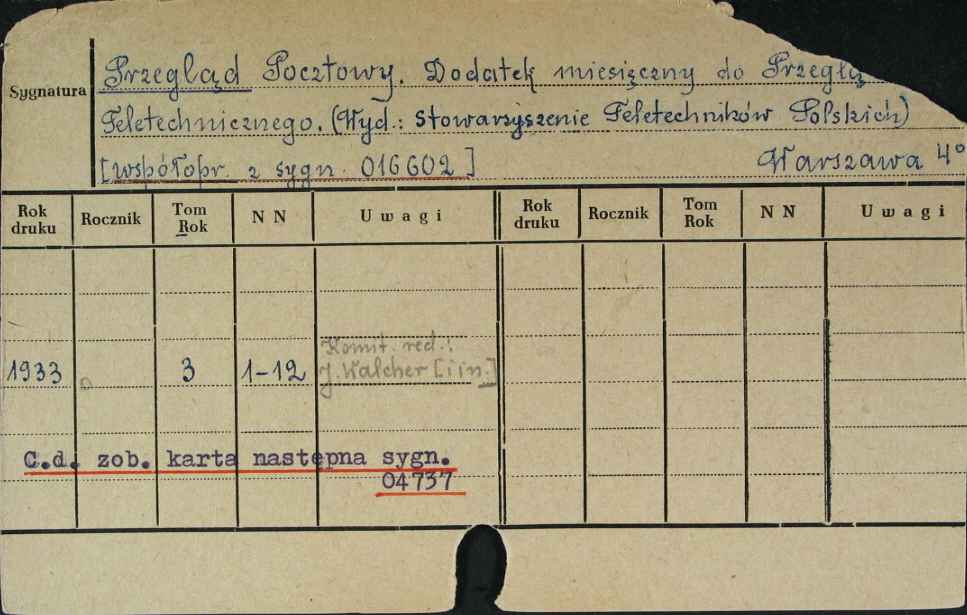 Sygnatura
Przegląd Pocztowy. Dodatek miesięczny do Przeglą
Teletechnicznego. (Wyd.: Stowarzyszenie Teletechników Polskich)
[współopr. z sygn. 016602] Warszawa 4°
Rok druku Rocznik Tom Rok NN Uwagi Rok druku Rocznik Tom Rok NN Uwagi
Komit. red.:
1933 3 1-12 J. Walcher [i in.]
C.d. zob. karta następna sygn.
04737